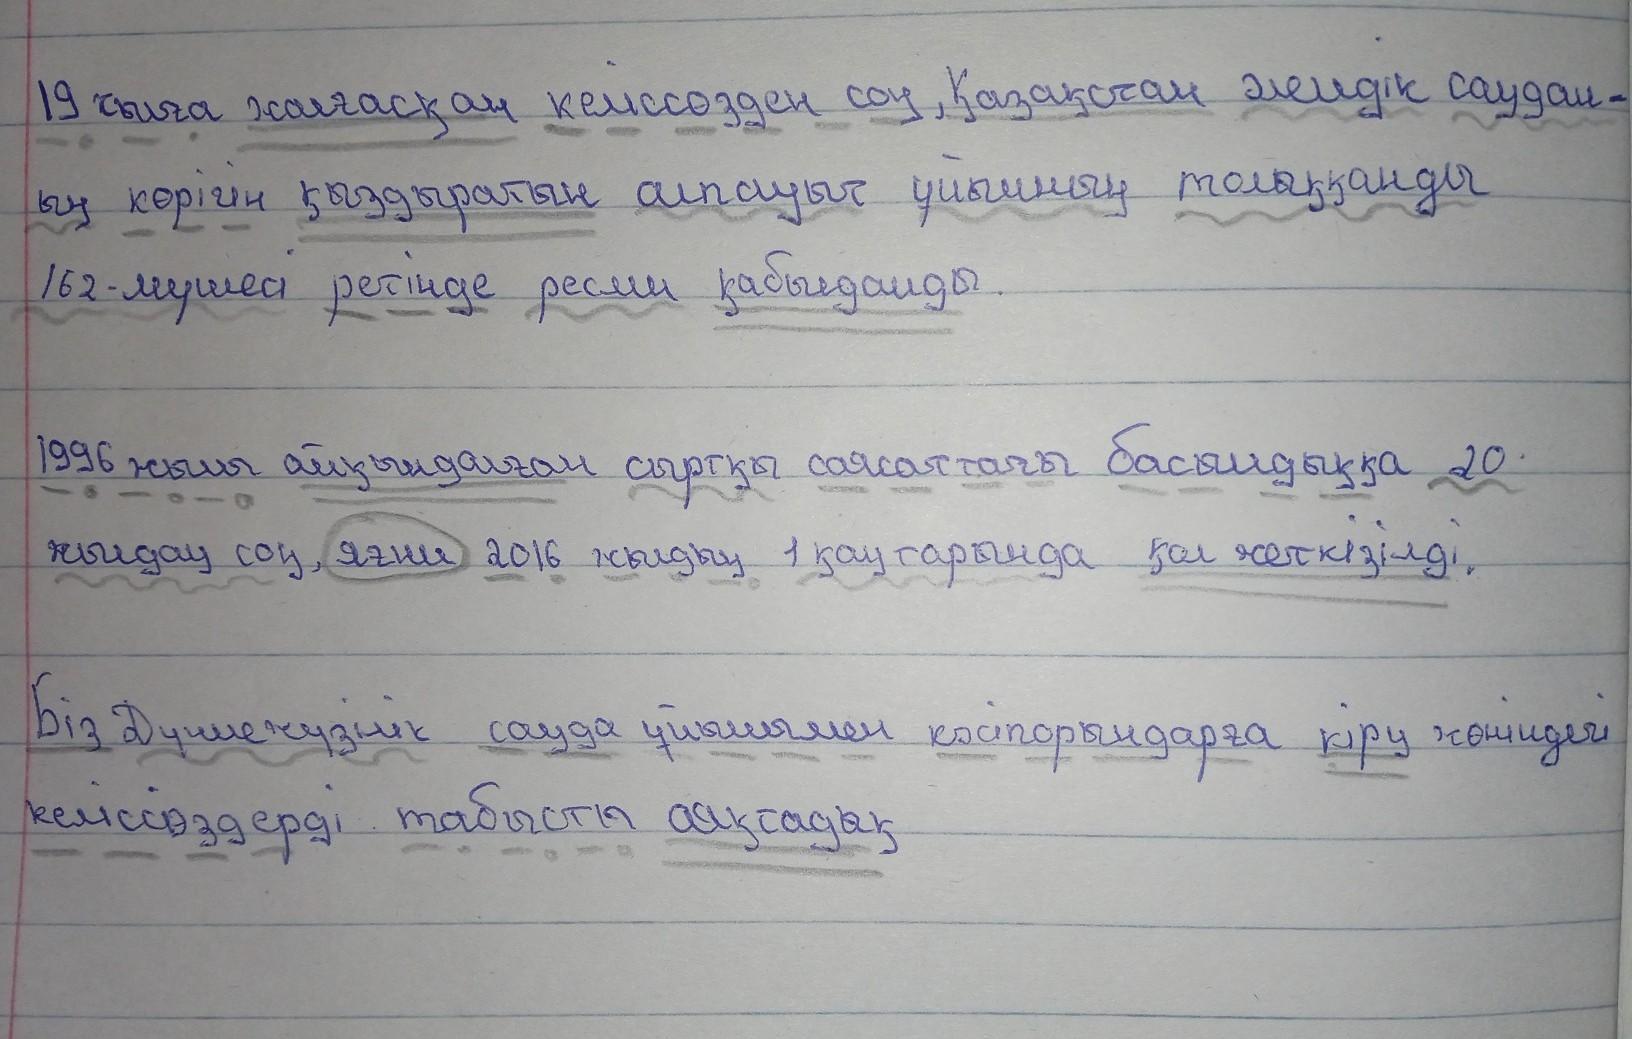 19 жылға жалғасқан келіссөзден соң, Қазақстан әлемдік саудан-
ың көрігін қыздыратын алпауыт ұйымның толыққанды
162-мүшесі ретінде ресми қабылданды.
1996 жылы айқындалған сыртқы саясаттағы басымдыққа 20
жылдан соң, яғни 2016 жылдың 1 қаңтарында қол жеткізілді.
Біз Дүниежүзілік сауда ұйымымен кәсіпорындарға кіру жөніндегі
келіссөздерді табысты аяқтадық